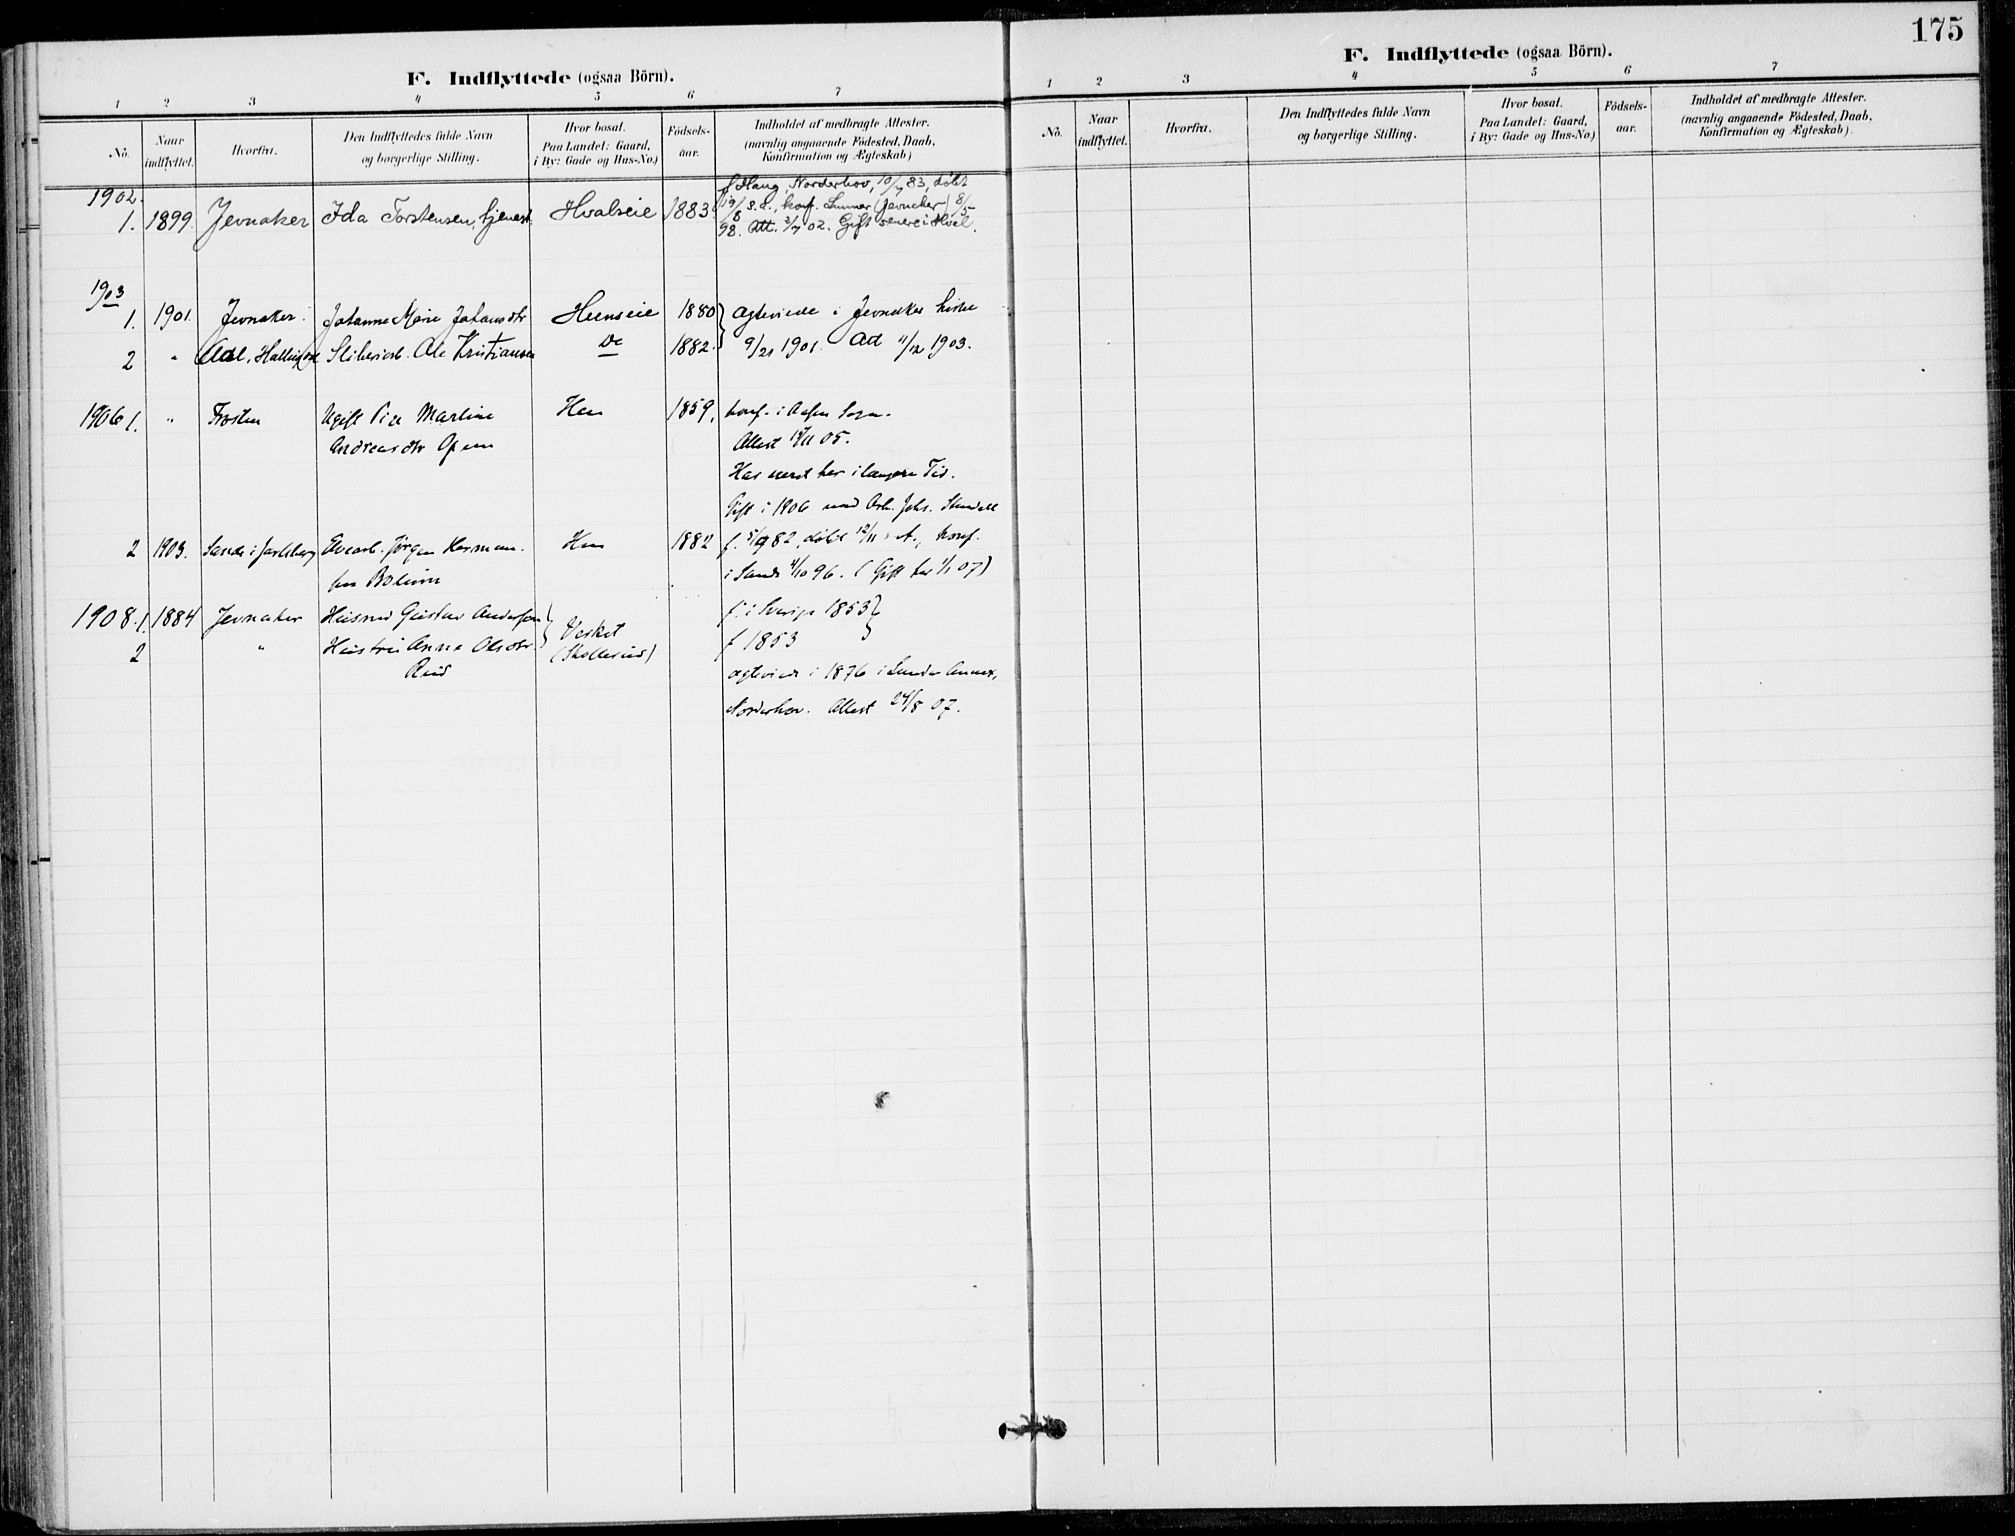 175
F. Indflyttede (ogsaa Börn).
1 2 3 4 5 6 7
No. Naar indflyttet. Hvorfra. Den Indflyttedes fulde Navn og borgerlige Stilling. Hvor bosat. Paa Landet: Gaard, i By: Gade og Hus-No.) Födsels-aar. Indholdet af medbragte Attester. (navnlig angaaende Födested, Daab, Konfirmation og Ægteskab)
1902.
f. Haug, Norderhov, 10/7 83, döbt
1. 1899 Jevnaker Ida Torstensen, tjenest. Hvalseie 1883 19/8 s. å., konf. Lunner (Jevnaker) 8/5
98. Att. 3/7 02. Gift senere i Hval.
1903
1. 1901. Jevnaker. Johanne Marie Johansdtr Heenseie 1880 ægteviede i Jevnaker kirke
2 " Aal, Hallingd Sliberiarb. Ole Kristiansen Do 1882. 9/21 1901. Ad 11/12 1903.
1906 1. " Ugift Martine Hen 1859. konf. i Sogn.
Andreasdtr Attest 05.
Har været her i længere Tid.
Gift i 1906 med Arb. Johs.
2 1903. Sande i Jarlsberg Jørgen Herman. Hen 1882 f. 5/9 82, döbt 12/11 s. A., konf.
i Sande 4/10 96. (Gift her 1/1 07)
1908. 1. 1884 Jevnaker Husmd Gustav Anderssen f. i Sverige 1853
Verket
2 " Hustru Anna Olsdtr f 1853
Ruud
ægteviede i 1876 i Annex,
Norderhov. Attest 24/8 07.
F. Indflyttede (ogsaa Börn).
1 2 3 4 5 6 7
No. Naar indflyttet. Hvorfra. Den Indflyttedes fulde Navn og borgerlige Stilling. Hvor bosat. Paa Landet: Gaard, i By: Gade og Hus-No.) Födsels-aar. Indholdet af medbragte Attester. (navnlig angaaende Födested, Daab, Konfirmation og Ægteskab)